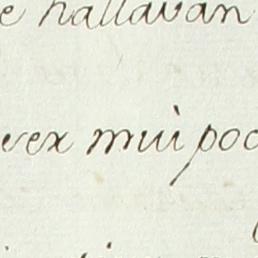 e hallavan
vex mui poc